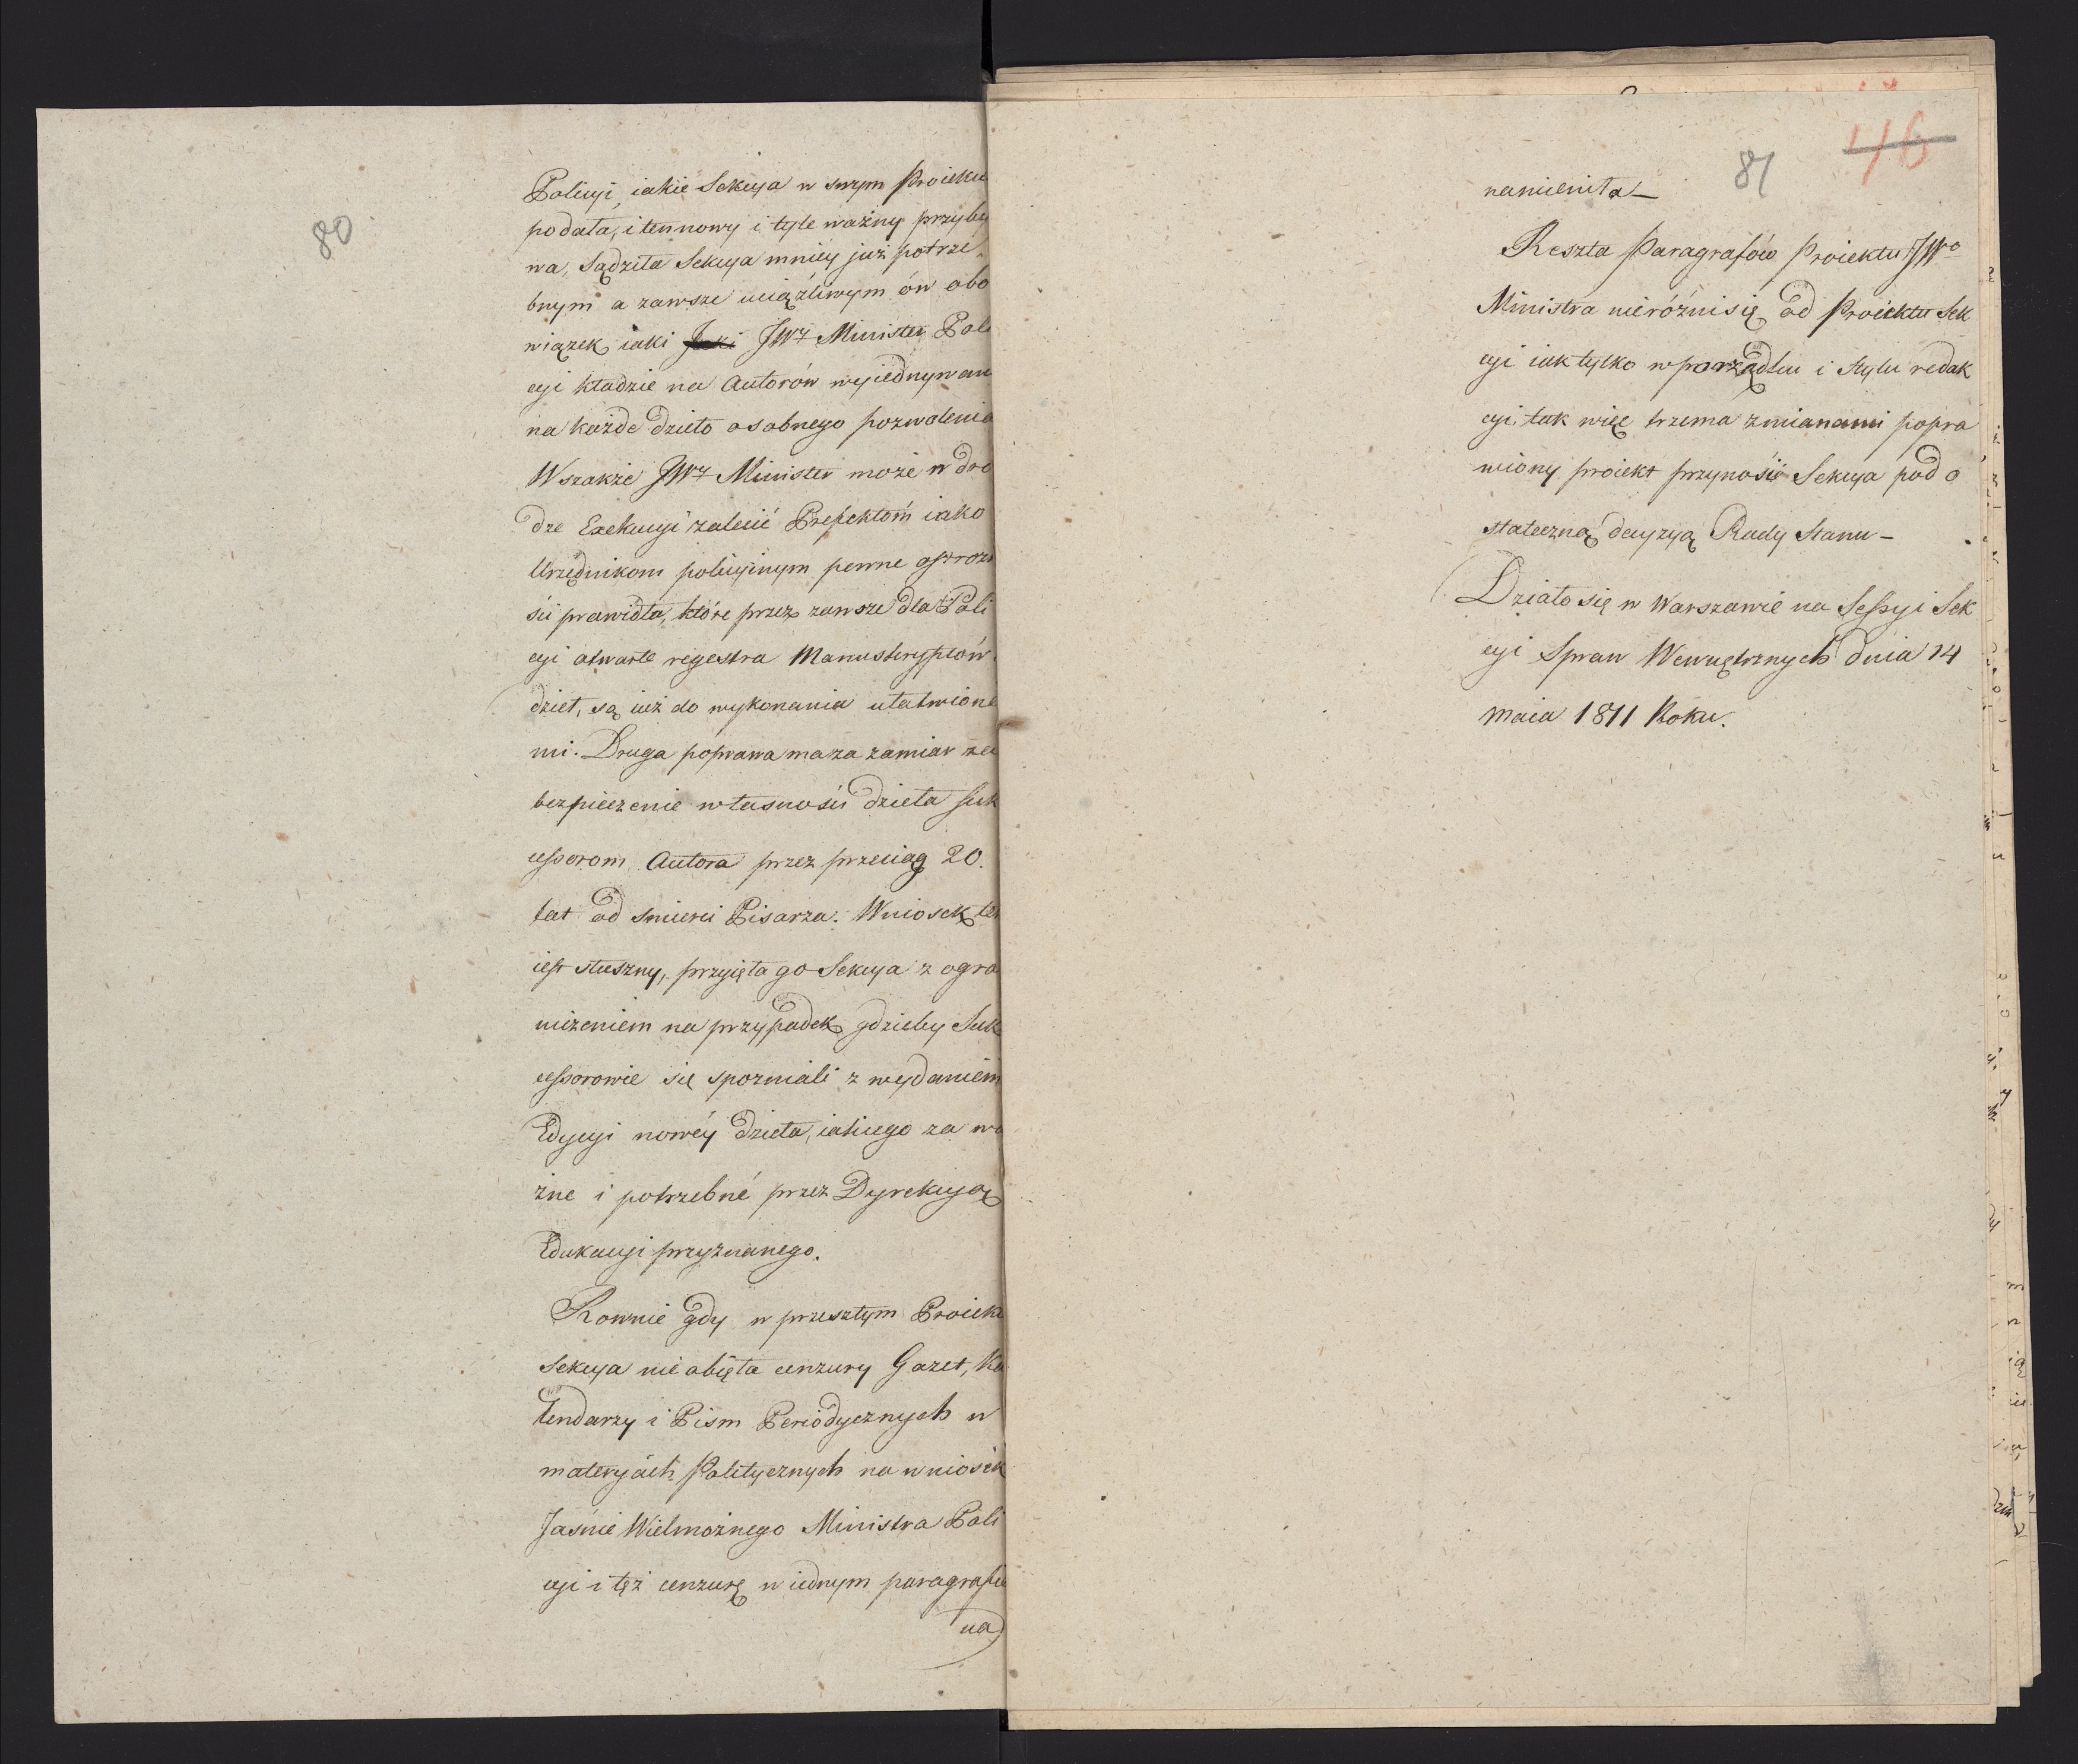 80
Policyi, iakie Sekcya w swym Proiektu
podała, i ten nowy i tyle ważny przyby
wa, Sądziła Sekcya mniéy już potrze
bnym a zawsze uciążliwym ów obo
wiązek iaki Jaki JWy Minister Poli
cyi kładzie na Autorów wyiednywan
na każde dzieło osobnego pozwolenia
Wszakże JWy Minister może w dro
dze Exekucyi zalecić Prefektom iako
Urzędnikom policyinym pewne ostroż
ści prawidła, które przez zawsze dla Poli
cyi otwarte regestra Manuskryptów
dzieł, są iuż do wykonania ułatwione
mi. Druga poprawa ma za zamiar za
bezpieczenie własności dzieła suk
cessorom Autora przez przeciąg 20.
lat od smierci Pisarza. Wniosek ten
iest słuszny, przyięła go Sekcya z ogra
niczeniem na przypadek gdzieby Suk
cessorowie się spozniali z wydaniem
Edycyi nowéy dzieła, iakiego za wa
żne i potrzebné przez Dyrekcyą
Edukacyi przyznanego.
Rownie gdy w przeszłym Proiek
Sekcya nie obięła cenzury Gazet, Ka
lendarzy i Pism Periodycznych w
materyach Politycznych na wniosek
Jaśnie Wielmożnego Ministra Poli
cyi i tęż cenzurę w iednym paragrafie
na
81
46
namieniła —
Reszta Paragrafów Proiektu JWo
Ministra nieróżni się od Proiektu Sek
cyi iak tylko w porządku i Stylu redak
cyi. tak więc trzema zmianami popra
wiony proiekt przynosi Sekcya pod o
stateczną decyzyą Rady Stanu —
Działo się w Warszawie na Sessyi Sek
cyi Spraw Wewnętrznych dnia 14
Maia 1811 Roku.